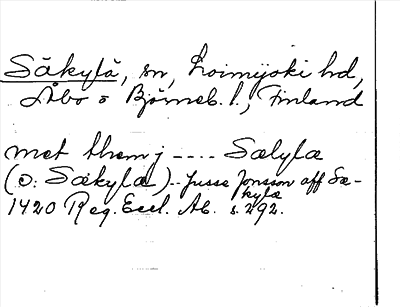 Säkylä, sn, Loimijoki hd,
Åbo o Björneb. l., Finland
met them j ---- Sælylæ
(ɔ: Sækylæ) -- Jusse Jonsson aff Sæ-
kylæ
1420 Reg. Eccl. Ab. s. 292.